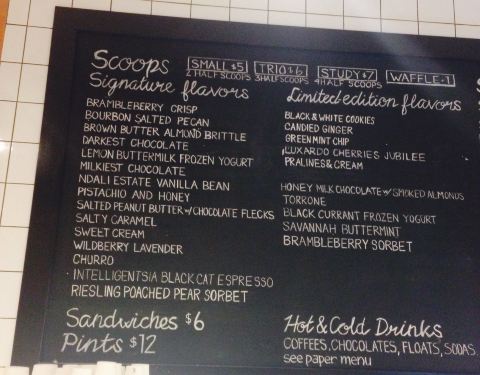 Scoops
SMALL $5
2 HALF SCOOPS
TRIO $6
3 HALF SCOOPS
STUDY $7
4 HALF SCOOPS
WAFFLE +1
Signature flavors
BRAMBLEBERRY CRISP
BOURBON SALTED PECAN
BROWN BUTTER ALMOND BRITTLE
DARKEST CHOCOLATE
LEMON BUTTERMILK FROZEN YOGURT
MILKIEST CHOCOLATE
NDALI ESTATE VANILLA BEAN
PISTACHIO AND HONEY
SALTED PEANUT BUTTER w/ CHOCOLATE FLECKS
SALTY CARAMEL
SWEET CREAM
WILDBERRY LAVENDER
CHURRO
INTELLIGENTSIA BLACK CAT ESPRESSO
RIESLING POACHED PEAR SORBET
Sandwiches $6
Pints $12
Limited edition flavors
BLACK & WHITE COOKIES
CANDIED GINGER
GREEN MINT CHIP
LUXARDO CHERRIES JUBILEE
PRALINES & CREAM
HONEY MILK CHOCOLATE w/ SMOKED ALMONDS
TORRONE
BLACK CURRANT FROZEN YOGURT
SAVANNAH BUTTERMINT
BRAMBLEBERRY SORBET
Hot & Cold Drinks
COFFEES, CHOCOLATES, FLOATS, SODAS
see paper menu